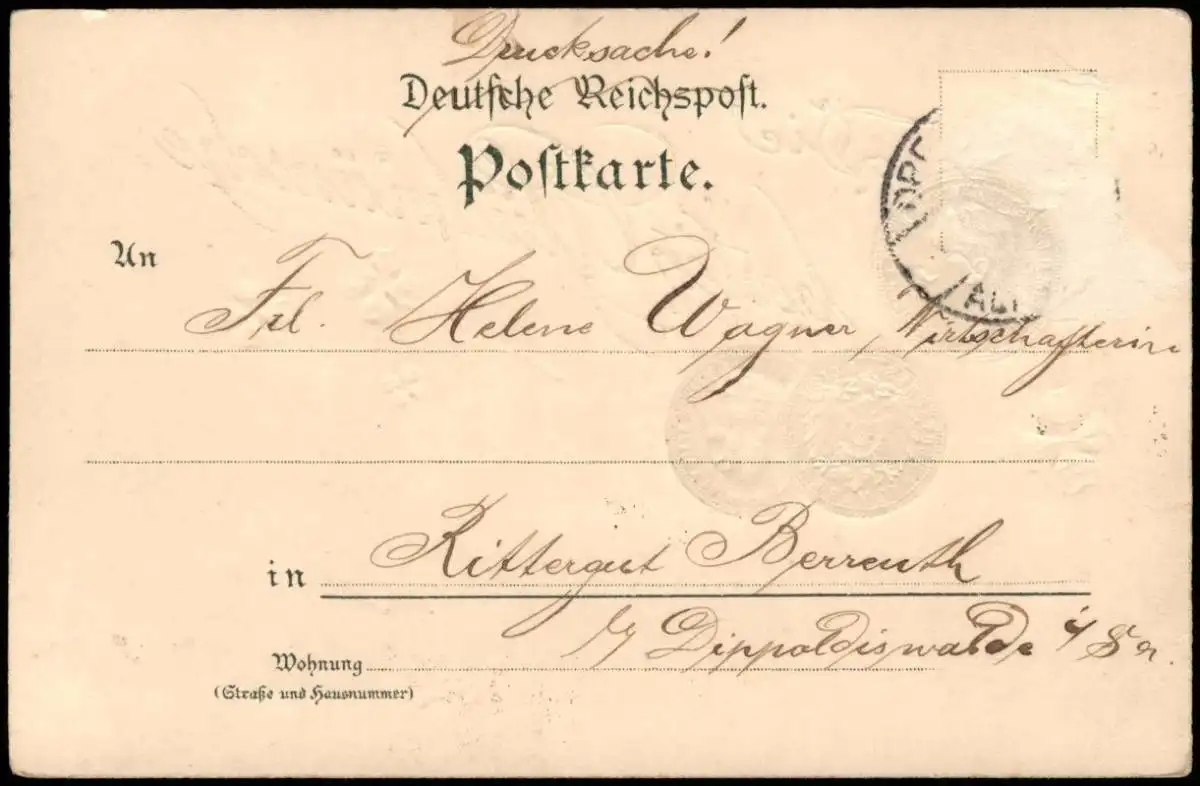 Drucksache!
Deutsche Reichspost.
Postkarte.
An
Frl. Helene Wagner, Wirtschafterin
in Rittergut Berreuth
b/ Dippoldiswalde i/Sa.
Wohnung
(Straße und Hausnummer)